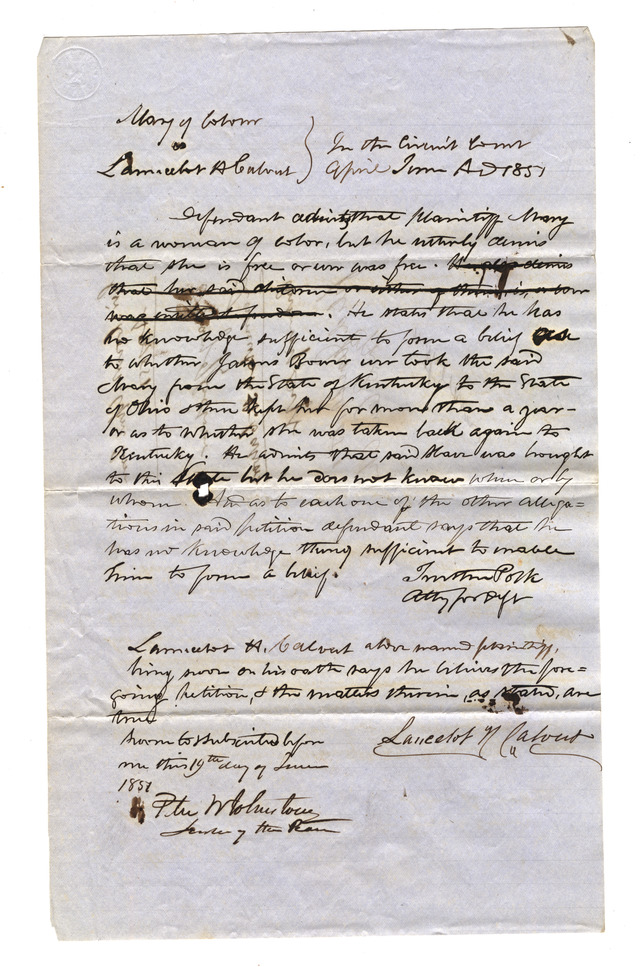 Mary of Colour
vs
Lancelot H Calvert
In the Circuit Court
April Term AD 1851
Defendant admits that Plaintiff Mary
is a woman of color, but he utterly denies
that she is free or ever was free. He also denies
that her said children or either of them is, or ever
was entitled to freedom. He states that he has
no knowledge sufficient to form a belief as
to whether James Bowr ever took the said
Mary from the State of Kentucky to the State
of Ohio & then kept her for more than a year-
or as to whether she was taken back again to
Kentucky. He admits that said Slave was brought
to this State but he does not know when or by
whom. And as to each one of the other allega=
tions in said petition defendant says that he
has no knowledge thereof sufficient to enable
him to form a belief.
Trusten Polk
Atty for Deft
Lancelot H. Calvert above named plaintiff,
being sworn on his oath says he believes the fore=
going petition, & the matters therein, as stated, are
true
Sworn to & subscribed before
me this 19th day of June
1851
Lancelot H Calvert
Peter W Johnstone
Justice of the Peace